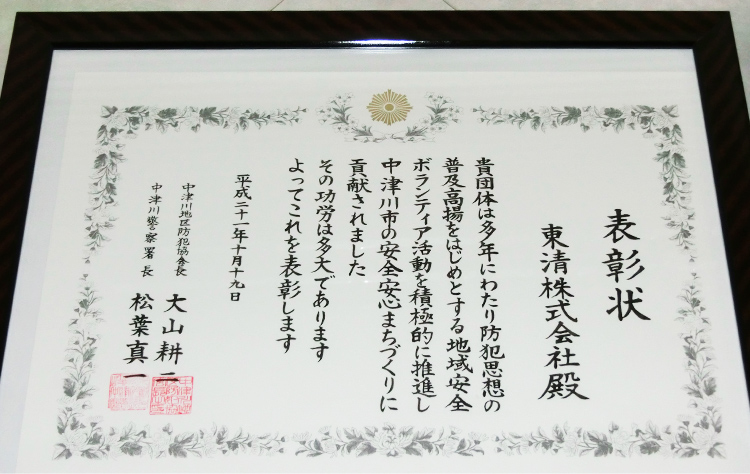 表彰状
東清株式会社殿
貴団体は多年にわたり防犯思想の
普及高揚をはじめとする地域安全
ボランティア活動を積極的に推進し
中津川市の安全安心まちづくりに
貢献されました
その功労は多大であります
よってこれを表彰します
平成二十一年十月十九日
中津川地区防犯協会長 大山耕一
中津川警察署長 松葉真一